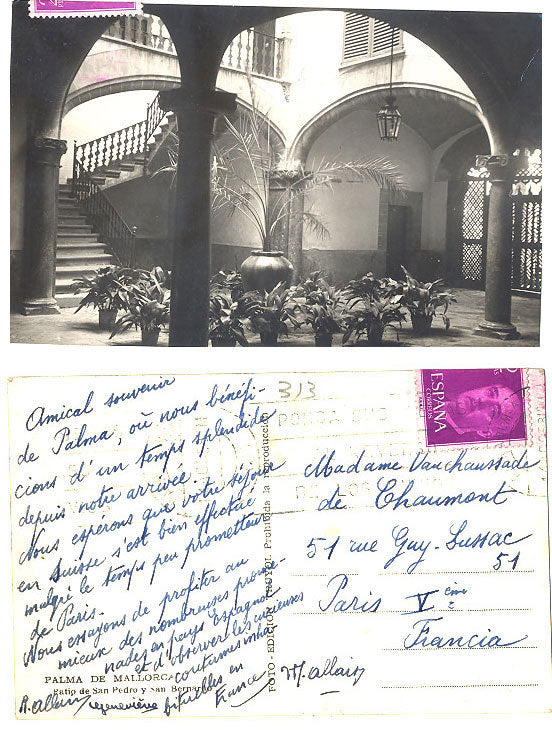 Amical souvenir
de Palma, où nous bénéfi-
cions d'un temps splendide
depuis notre arrivée.
Nous esperons que votre séjour
en Suisse s'est bien effectué
malgré le temps peu prometteur
de Paris.
Nous essayons de profiter au
mieux des nombreuses prome-
nades en pays Espagnol
et d'observer les curieuses
coutumes inha-
bituelles en
France
R. allain
M. allain
PALMA DE MALLORCA
Patio de San Pedro y San Bernar
FOTO - EDICION TRUYOL Prohibida la reproducción
313
ESPAÑA
CORREOS
Madame Vanchaussade
de Chaumont
51 rue Gay-Lussac
51
Paris V ème
Francia